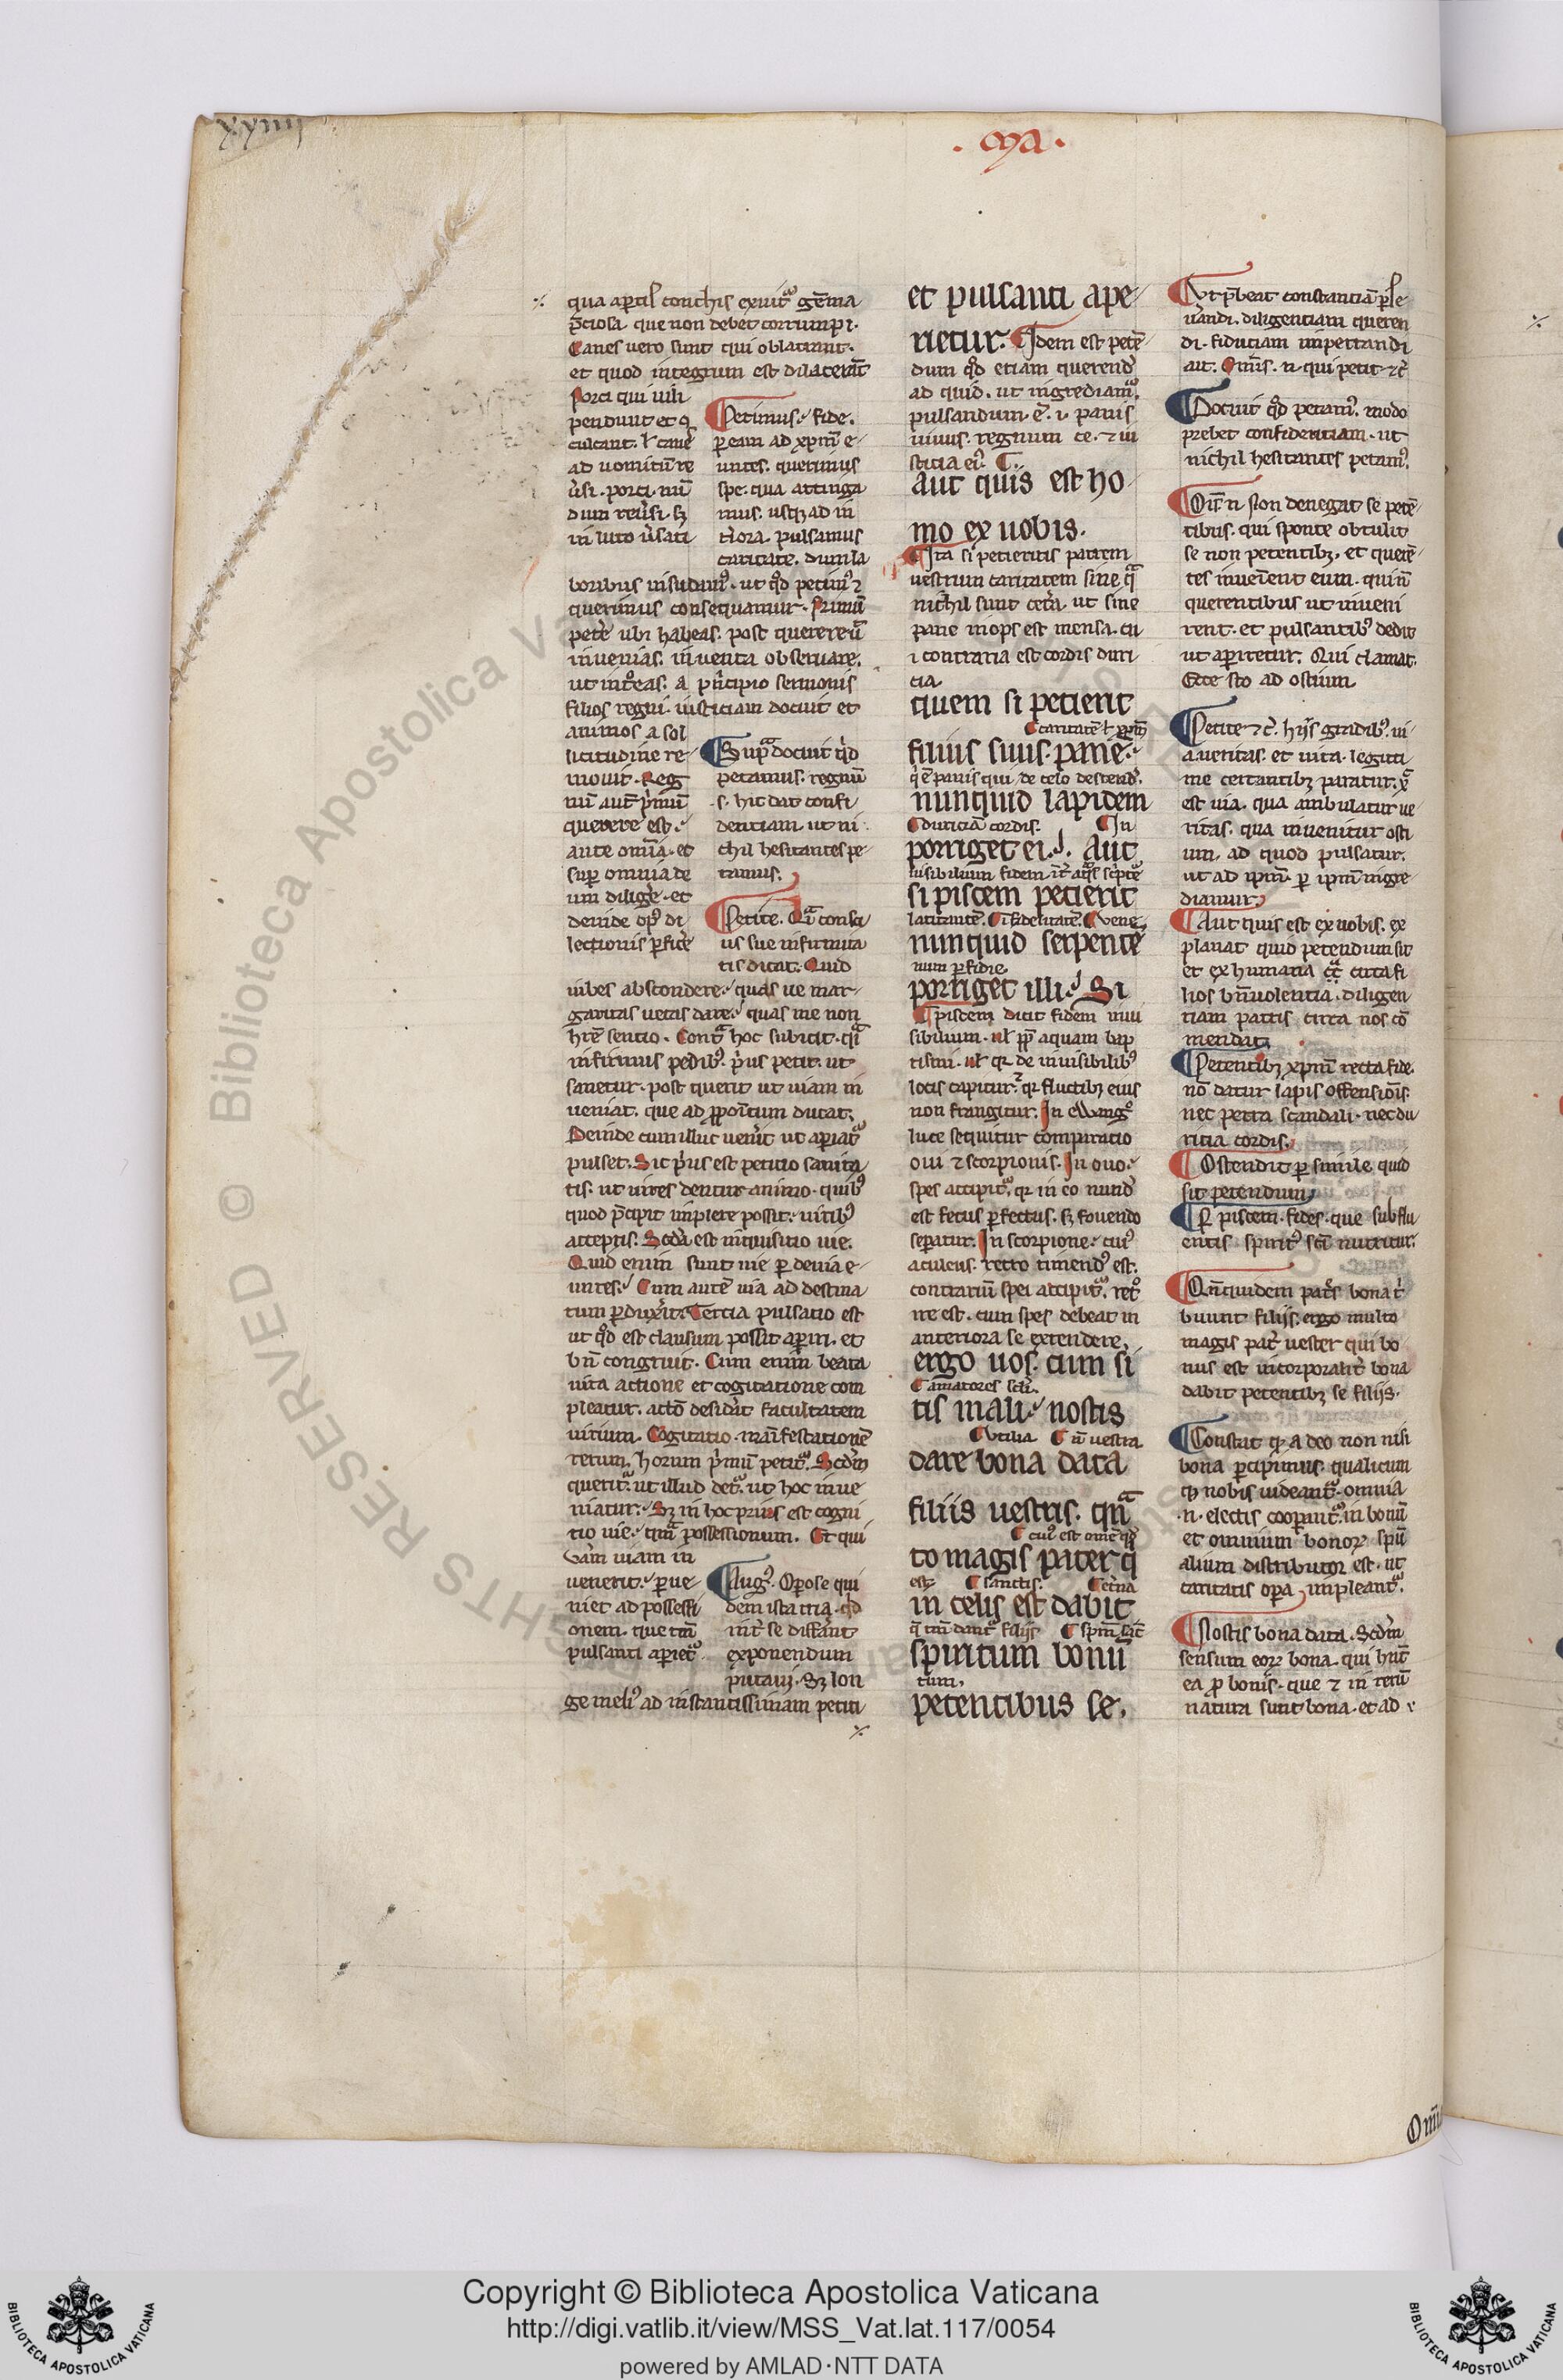 xxiiii
. Ma .
qua aptis conchis exuit᷑ gēma
p̄ciosa. que non debet corrumpi.
Canes uero sunt qui oblatrant.
et quod integrum est dilacerāt
Porci qui uili
pendunt et
culcant. ł cane
ad uomitū re
u̓si. porci. mū
dum reu̓si. sꝫ
in luto u̓sati
Petimus. fide.
ꝑ eam ad xp̄m e
untes. querimus
spe. qua attinga
mus. usqꝫ ad in
t̓iora. pulsamus
caritate. dum la
boribus insudamꝰ. ut qd̓ petimꝰ ⁊
querimus consequamur. Primū
pete̓ ubi habeas. post querere ū
inuenias. inuenta obseruare.
ut int̓eas. a pͥncipio sermonis
filios regni. iusticiam docuit et
animos a sol
licitudine re
mouit. Reg
nū aut̄ pͥmū
querere est.
ante omīa. et
suꝑ omnia de
um dilige̓. et
deinde opꝰ di
lectionis ꝑfice̓
Supᵃ docuit qd̓
petamus. regnū
s. hic dat confi
dentiam. ut ni
chil hesitantes pe
tamus.
Petite. Qͥa consci
us sue infirmita
tis dicat. Quid
iubes abscondere. quas ue mar
garitas uetas dare. quas me non
hr̄e sentio. Contᵃ hoc subicit. qͥa
infirmus pedibꝰ. pͥus petit. ut
sanetur. post querit ut uiam in
ueniat. que ad ꝓpoītum ducat.
Deinde cum illuc uen̓it ut aꝑiat᷑
pulset. Sic pͥus est petitio sanita
tis. ut uires dentur animo. quibꝰ
quod p̄cipit implere possit. uiribꝰ
acceptis. Scd̓a est inquisitio uie.
Quid enim sunt uie ꝑ deuia e
untes. Cum autē uia ad destina
tum ꝑdux̓it. Tercia pulsatio est
ut qd̓ est clausum possit aꝑiri. et
bn̄ congruit. Cum enim beata
uita actione et cogitatione com
pleatur. actō desid̓at facultatem
uirium. Cogitatio. māifestationē
rerum. horum pͥmū petit᷑. Scd̓m
querit᷑. ut illud det᷑. ut hoc inue
niatur. Sꝫ in hoc prius est cogni
tio uie. qm̄ possessionum. Et qui
uām uiam in
uenerit. ꝑue
niet ad possessi
onem. que tm̄
pulsanti aꝑiet᷑
Augꝰ. Oꝑose qui
dem ista tria. qd̓
int̓ se differāt
exponendum
putaui. Sꝫ lon
ge meliꝰ ad instantissimam petiti
et pulsanti ape
rietur. Idem est petē
dum qd̓ etiam querend̓
ad quid. ut ingrediam᷑.
pulsandum. ē. i. panis
uiuus. regnum ce. ⁊ iu
sticia eiꝰ.
aut quis est ho
mo ex uobis.
Ita si petieritis patrem
uestrum caritatem sine qᵃ
nichil sunt cet̓a. ut sine
pane inops est mensa. cu
i contraria est cordis duri
cia.
quem si petierit
caritatē ł xp̄m
filius suus. panē.
qͥ ē panis qui de celo descend̓.
nunquid lapidem
duriciā cordis. In
porriget ei. Aut
si piscem petierit
latitantē. Infidelitatē. uene
nunquid serpentē
num ꝑfidie.
porriget illi. Si
piscem dicit fidem inui
sibilium. uł ꝓp̄ aquam bap
tismi. uł qꝛ de inuisibilibꝰ
locis capitur. qꝛ fluctibꝫ eius
non frangitur. In ewangᵒ
luce sequitur comparatio
oui ⁊ scorpionis. In ouo.
spes accipit᷑. qꝛ in eo nund̓
est fetus ꝑfectus. sꝫ fouendo
seꝑatur. In scorpione. cuiꝰ
aculeus. retro timendꝰ est.
contrariū spei accipit᷑. retͦ
ire est. cum spes debeat in
anteriora se extendere.
ergo uos. cum si
amatores scli.
tis mali. nostis
Vtilia n̄ uestra
dare bona data
filiis uestris. qn̄ᵃ
cuiꝰ est omē qd̓
to magis pater qͥ
est. sanctis. et̓na
in celis est dabit
qͥ tm̄ dant᷑ filijs sp̄m sāc
spiritum bonū
tum.
petentibus se.
Vt p̄beat constanciā ꝑse
u̓andi. diligentiam queren
di. fiduciam impetrandi
ait. Omīs. n. qui petit ⁊c̓
Docuit qd̓ petamꝰ. modo
prebet confidentiam. ut
nichil hesitantes petamꝰ.
Oīs n̄ Non denegat se petē
tibus. qui sponte obtulit
se non petentibꝫ. et querē
tes inuenient eum. qui n̄
querentibus ut inueni
rent. et pulsantibꝰ dedit
ut aꝑiretur. Qui clamat.
Ecce sto ad ostium.
Petite ⁊c̓. hijs gradibꝰ. ui
a. ueritas. et uita. legiti
me certantibꝫ paratur. xᵃ
est uia. qua ambulatur ue
ritas. qua inuenitur osti
um. ad quod pulsatur.
ut ad ip̄m. ꝑ ip̄m ingre
diamur.
Aut quis est ex uobis. ex
planat quid petendum sit
et ex humana circa fi
lios bn̄iuolentia. diligen
tiam patris circa nos cō
mendat.
Petentibꝫ xp̄m recta fide.
nō datur lapis offensiōis.
nec petra scandali. nec du
ricia cordis.
Ostendit ꝑ simile. quid
sit petendum.
Ꝑ piscem. fides. que subflu
entis spiritꝰ scī nutritur.
Qn̄quidem pat̓s bona t̓
buunt filijs. ergo multo
magis pat̓ uester qui bo
nus est incorporalit̓ bona
dabit petentibꝫ se filijs.
Constat qꝫ a deo non nisi
bona ꝑcipimus. qualicum
qꝫ nobis uideant᷑. omnia
.n. electis cooꝑant᷑. in bonū
et omnium bonoꝝ spū
alium distributor est. ut
caritatis oꝑa impleant᷑.
Nostis bona data. Scd̓m
sensum eoꝝ bona. qui hn̄t
ea ꝓ bonis. que ⁊ in rerū
natura sunt bona. et ad
Om̄
Copyright © Biblioteca Apostolica Vaticana
http://digi.vatlib.it/view/MSS_Vat.lat.117/0054
powered by AMLAD·NTT DATA